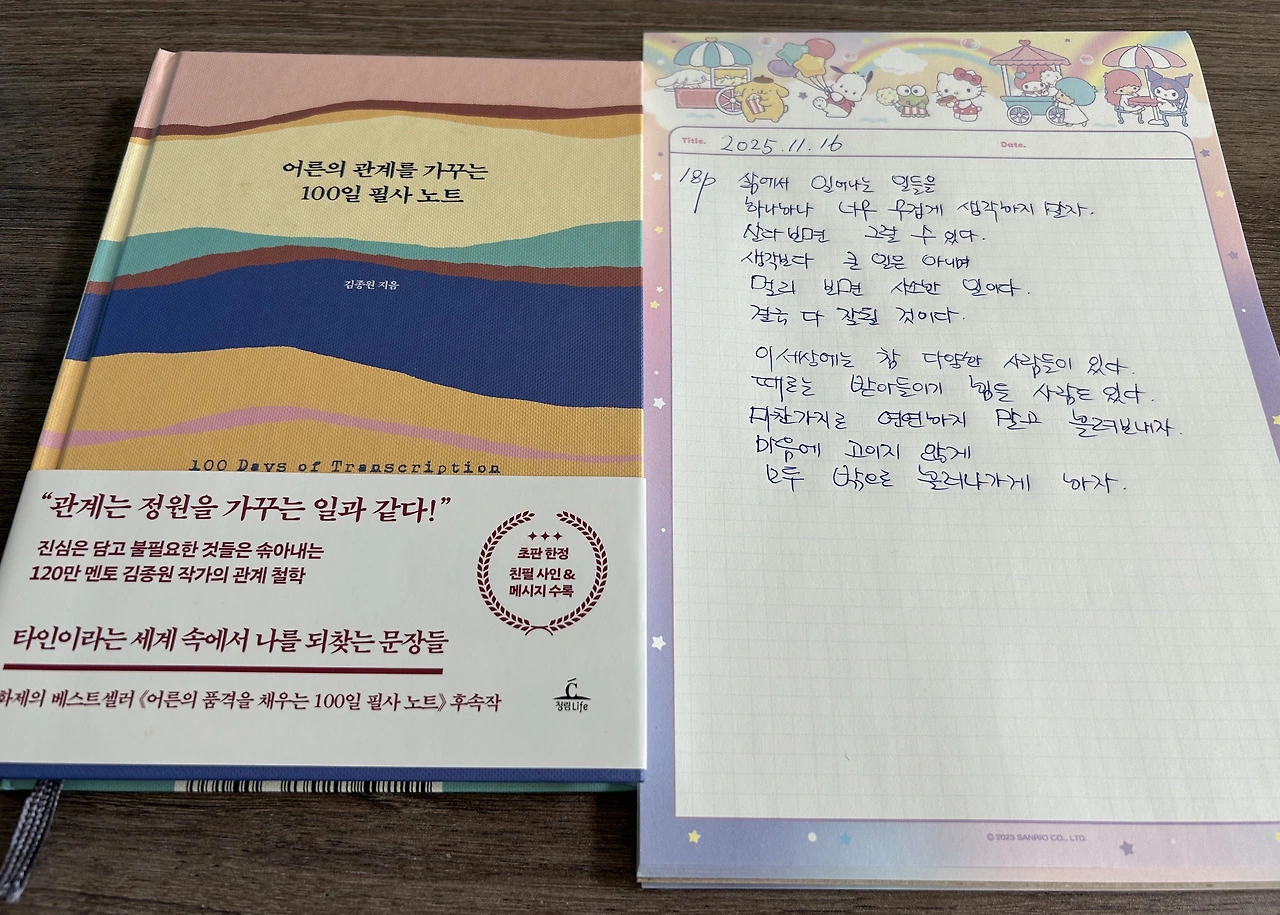 어른의 관계를 가꾸는
100일 필사 노트
김종원 지음
100 Days of Transcription
“관계는 정원을 가꾸는 일과 같다!”
진심은 담고 불필요한 것들은 솎아내는
120만 멘토 김종원 작가의 관계 철학
초판 한정
친필 사인 &
메시지 수록
타인이라는 세계 속에서 나를 되찾는 문장들
화제의 베스트셀러 《어른의 품격을 채우는 100일 필사 노트》 후속작
청림Life
Title. 2025.11.16 Date.
18p 삶에서 일어나는 일들을
하나하나 너무 무겁게 생각하지 말자.
살다 보면 그럴 수 있다.
생각보다 큰 일은 아니며
멀리 보면 사소한 일이다.
결국 다 잘될 것이다.
이 세상에는 참 다양한 사람들이 있다.
때로는 받아들이기 힘든 사람도 있다.
마찬가지로 연연하지 말고 흘려보내자.
마음에 고이지 않게
모두 밖으로 흘러나가게 하자.
© 2023 SANRIO CO., LTD.